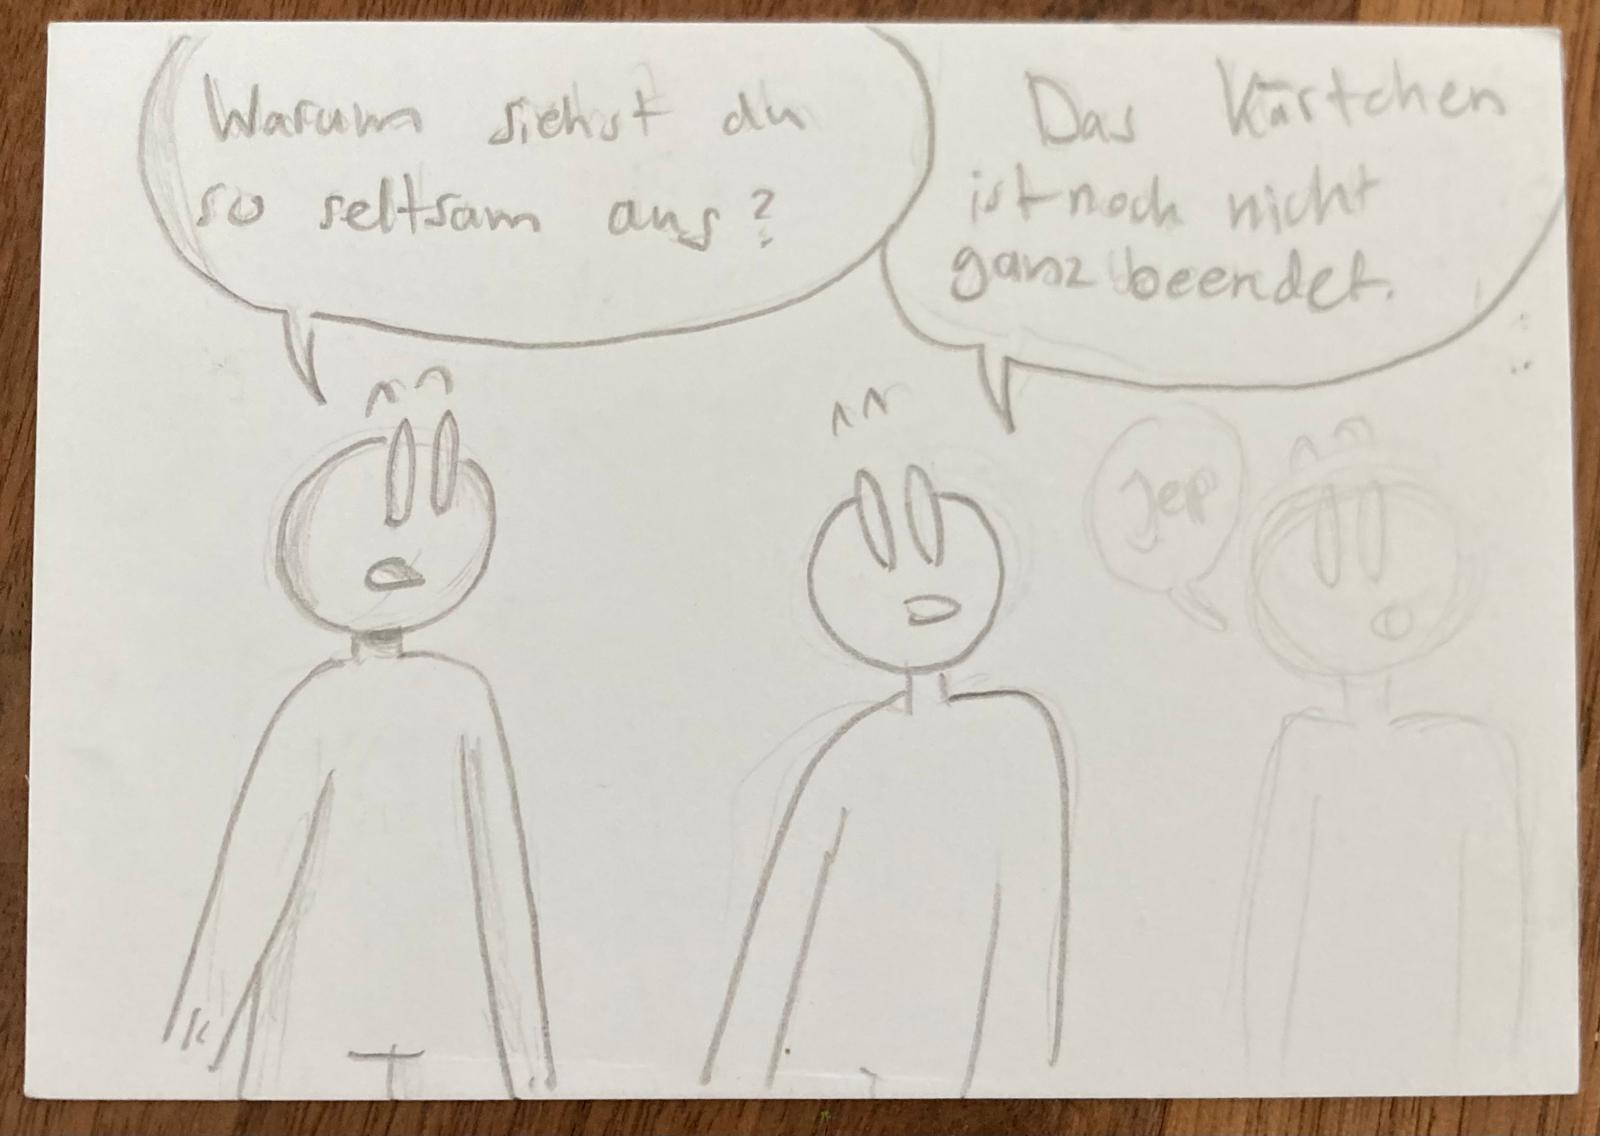 Warum siehst du
so seltsam aus?
Das Kärtchen
ist noch nicht
ganz beendet.
Jep